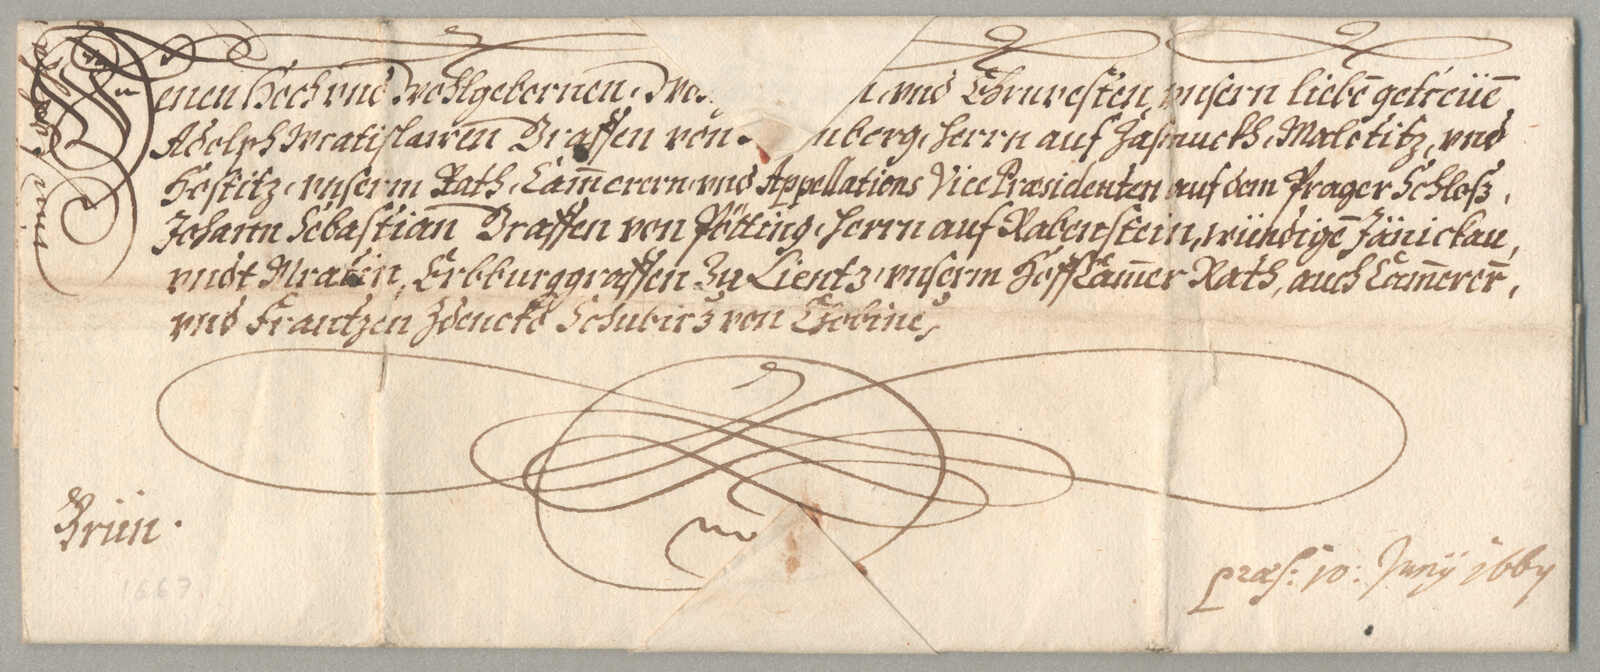 Denen Hoch vnd Wohlgebornen, vnd Ehrnvesten, vnsern liebē getreüē
Adolph Wratislawen Graffen von nberg, Herrn auf Zasmuckh, Maletitz, vnd
Kostitz, vnserm Rath, Cam̄erern, vnd Appellations Vice Præsidenten auf dem Prager Schloß,
Johann Sebastian Graffen von Pötting, Herrn auf Rabenstein,
vndt Erbburggraffen Zu Lientz, vnserm Hoff Cam̄er Rath, auch Cam̄erern,
vnd Frantzen Zdenckho Schubirz von Chobine,
Brün.
præs: 10: Junÿ 1667
1667